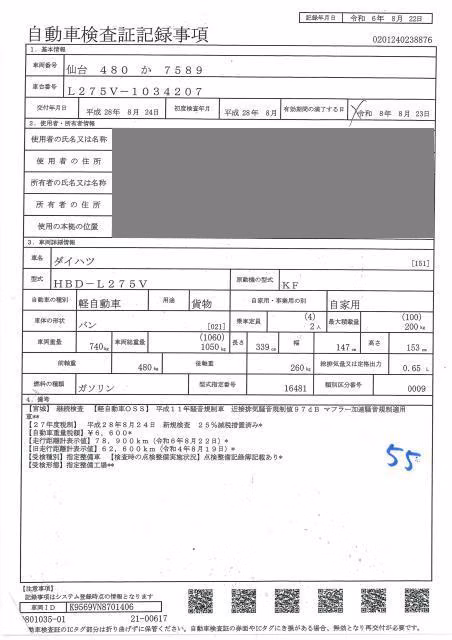 記録年月日 令和 6年 8月 22日
自動車検査証記録事項
0201240238876
1. 基本情報
車両番号 仙台 480 か 7589
車台番号 L275V-1034207
交付年月日 平成 28年 8月 24日 初度検査年月 平成 28年 8月 有効期間の満了する日 令和 8年 8月 23日
2. 使用者・所有者情報
使用者の氏名又は名称
使用者の住所
所有者の氏名又は名称
所有者の住所
使用の本拠の位置
3. 車両詳細情報
車名 ダイハツ [151]
型式 HBD-L275V 原動機の型式 KF
自動車の種別 軽自動車 用途 貨物 自家用・事業用の別 自家用
車体の形状 バン [021] 乗車定員 (4) 2人 最大積載量 (100) 200kg
車両重量 740kg 車両総重量 (1060) 1050kg 長さ 339cm 幅 147cm 高さ 153cm
前軸重 480kg 後軸重 260kg 総排気量又は定格出力 0.65 L
燃料の種類 ガソリン 型式指定番号 16481 類別区分番号 0009
4. 備考
【宮城】 継続検査 【軽自動車OSS】 平成11年騒音規制車 近接排気騒音規制値97dB マフラー加速騒音規制適用
車**
【27年度税制】 平成28年8月24日 新規検査 25%減税措置済み*
【自動車重量税額】 ¥6,600*
【走行距離計表示値】 78,900km (令和6年8月22日) *
【旧走行距離計表示値】 62,600km (令和4年8月19日) *
【受検種別】 指定整備車 【検査時の点検整備実施状況】 点検整備記録簿記載あり*
【受検形態】 指定整備工場**
55
【注意事項】
記録事項はシステム登録時点の情報となります
車両ID K9569VN8701406
801035-01 21-00617
動車検査証のICタグ部分は折り曲げずに保管ください。自動車検査証の券面やICタグにき損がある場合、無効となり再交付が必要です。